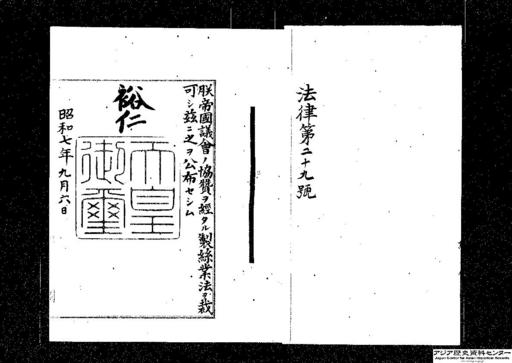 法律第二十九號
朕帝國議會ノ協贊ヲ經タル製絲業法ヲ裁
可シ茲ニ之ヲ公布セシム
裕仁
天皇
御璽
昭和七年九月六日
アジア歴史資料センター
Japan Center for Asian Historical Records